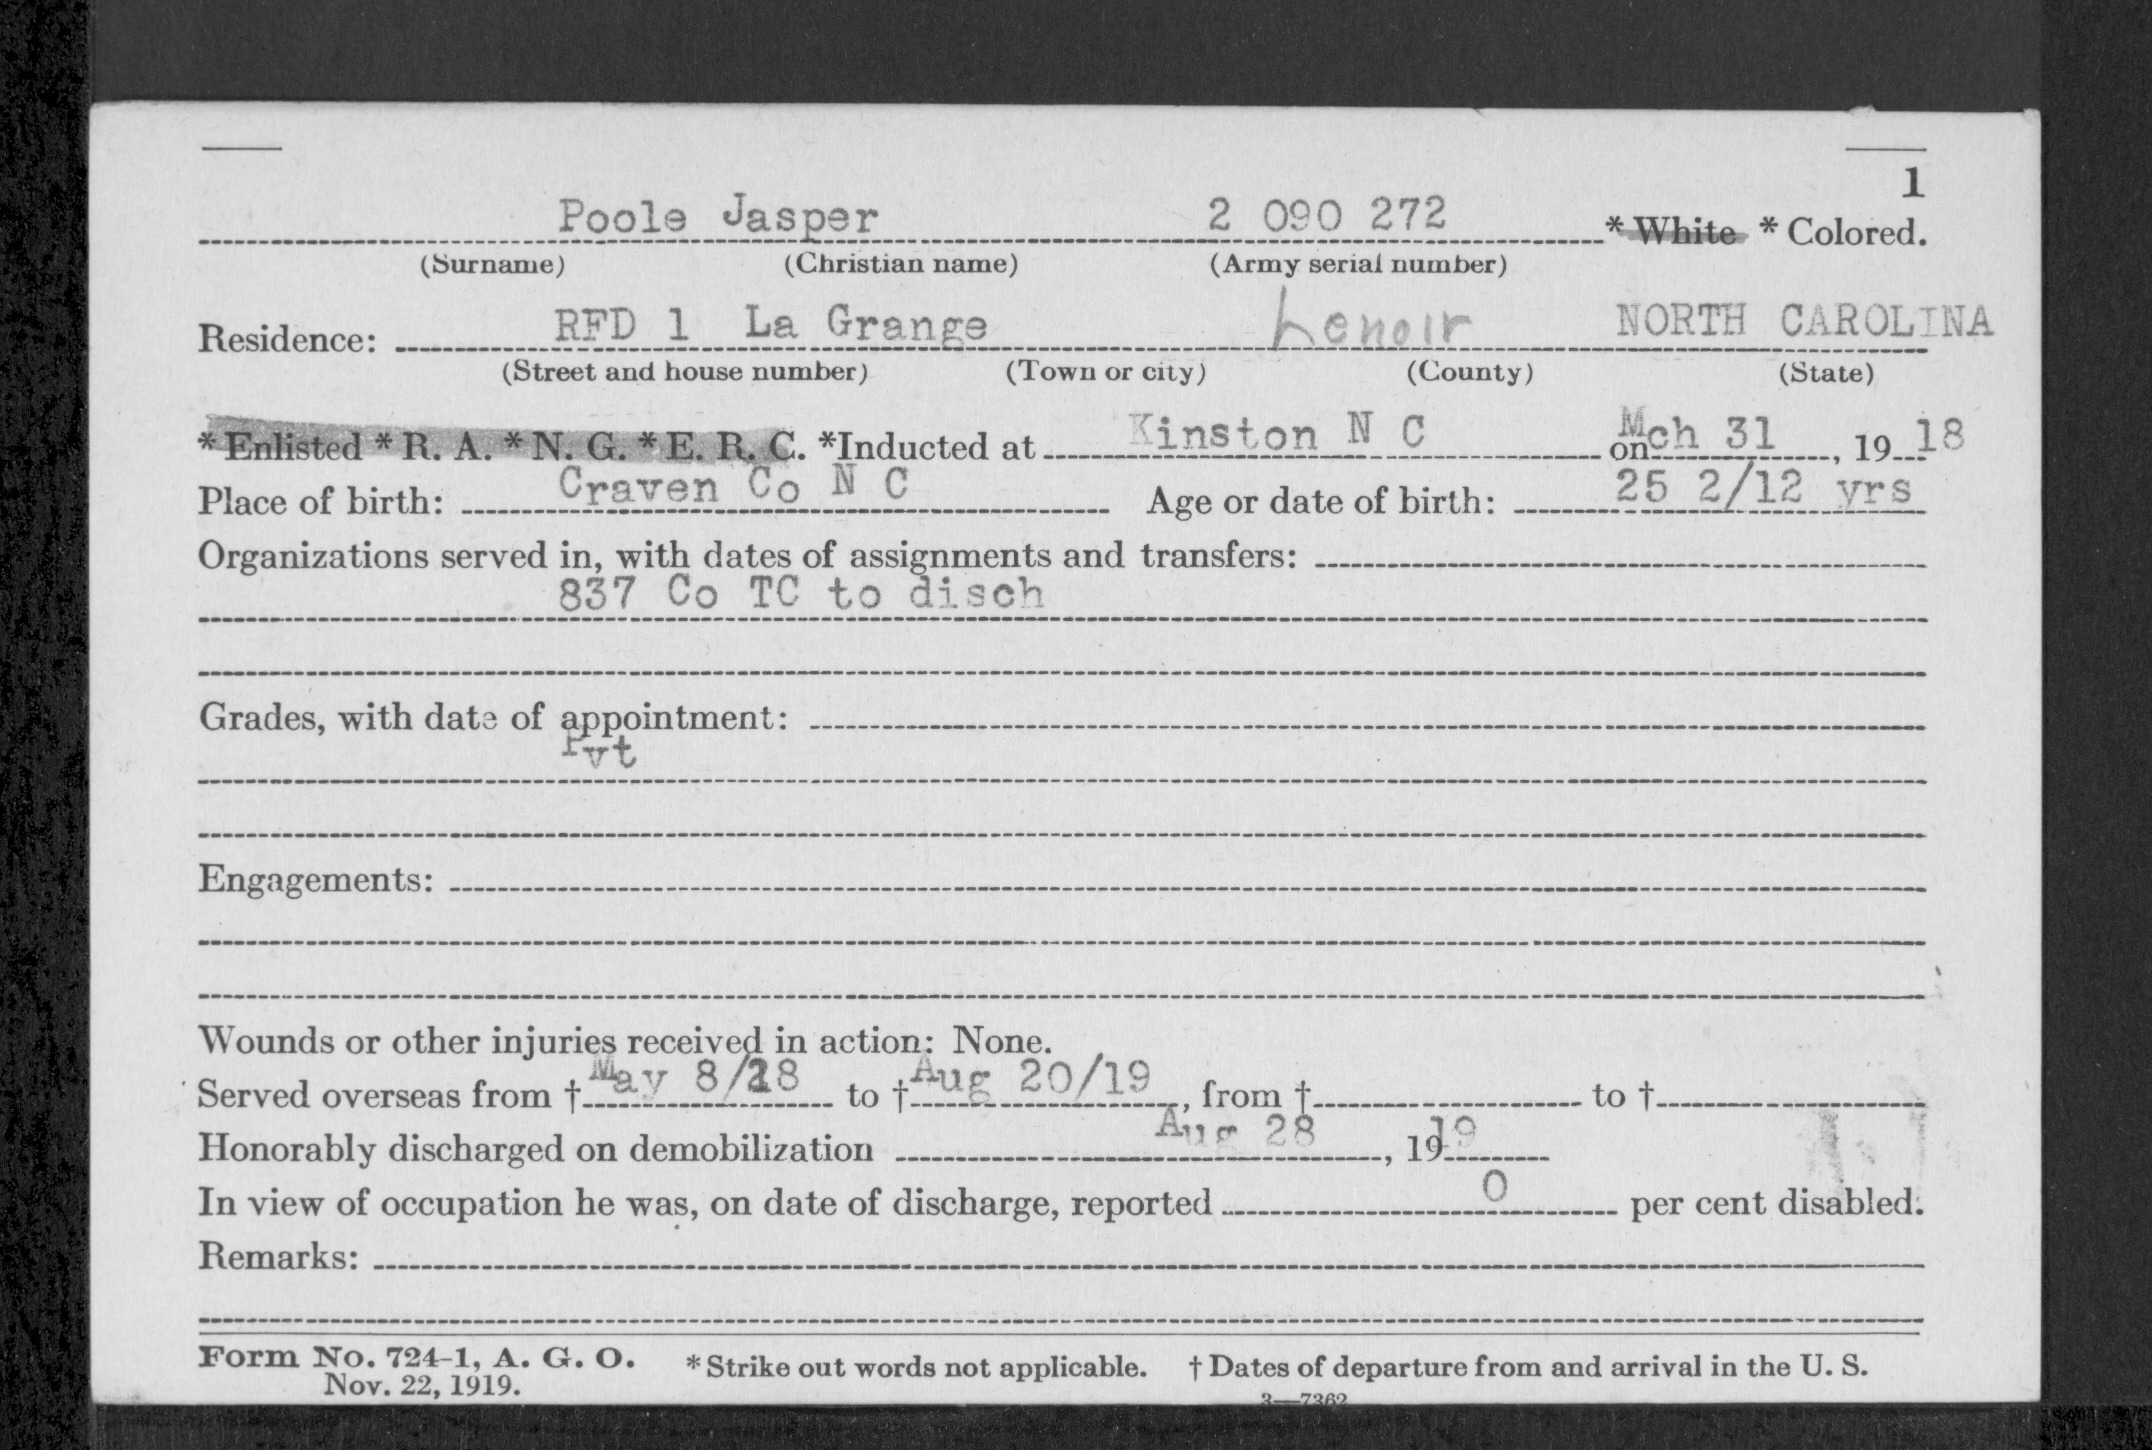 1
Poole Jasper 2 090 272 * White * Colored.
(Surname) (Christian name) (Army serial number)
Residence: RFD 1 La Grange Lenoir NORTH CAROLINA
(Street and house number) (Town or city) (County) (State)
* Enlisted * R. A. * N. G. * E. R. C. *Inducted at Kinston N C on Mch 31, 19 18
Place of birth: Craven Co N C Age or date of birth: 25 2/12 yrs
Organizations served in, with dates of assignments and transfers:
837 Co TC to disch
Grades, with date of appointment:
Pvt
Engagements:
Wounds or other injuries received in action: None.
Served overseas from † May 8/18 to † Aug 20/19, from † to †
Honorably discharged on demobilization Aug 28, 19 19
In view of occupation he was, on date of discharge, reported 0 per cent disabled.
Remarks:
Form No. 724-1, A. G. O. * Strike out words not applicable. † Dates of departure from and arrival in the U. S.
Nov. 22, 1919.
3—7362